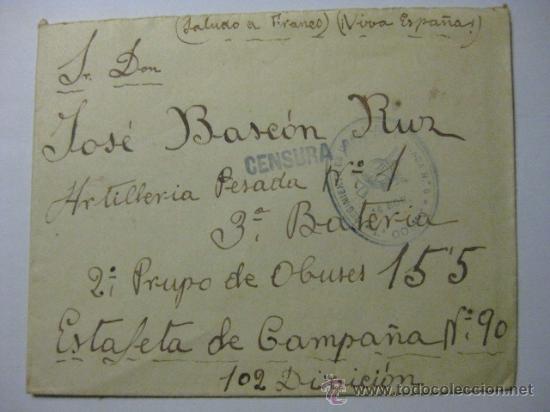 (Saludo a Franco) (Viva España)
Sr. Don
José Bascón Ruz
CENSURA
Artilleria Pesada Nº 1
3ª Bateria
2º Prupo de Obuses 155
Estafeta de Campaña Nº 90
102 División
www.todocoleccion.net